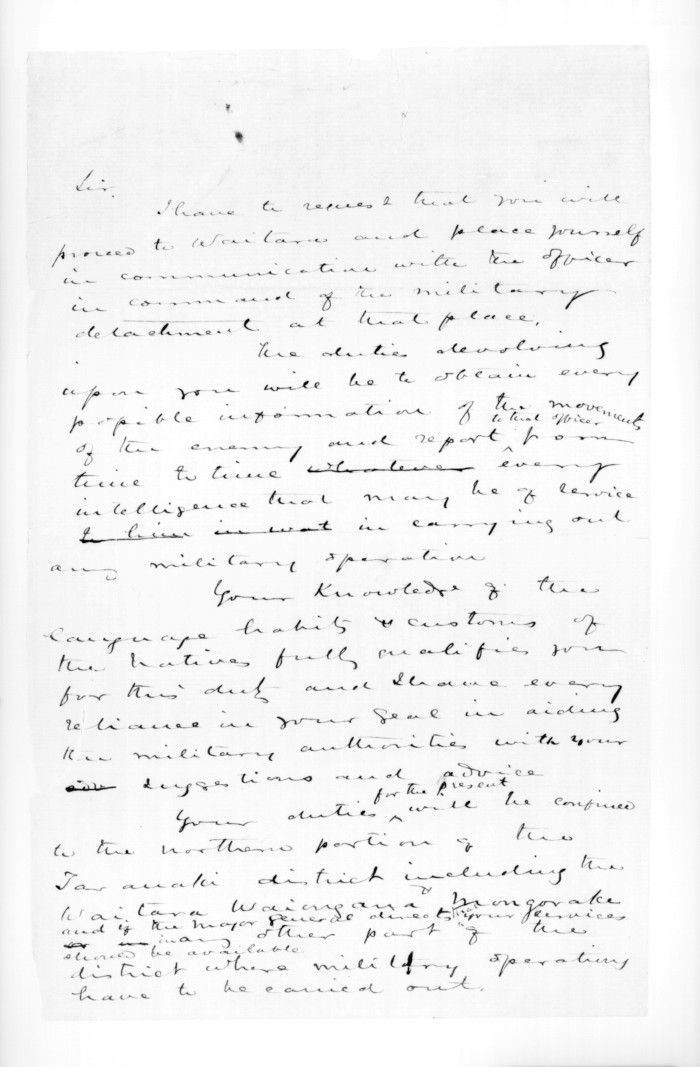 Sir,
I have to request that you will
proceed to Waitara and place yourself
in communication with the officer
in command of the military
detachment at that place.
The duties devolving
upon you will be to obtain every
possible information of the movements
to that officer
of the enemy and report ^ from
time to time whatever every
intelligence that may be of service
to him in wat in carrying out
any military operation
Your Knowledge of the
language habits & customs of
the Natives fully qualifies you
for this duty and I have every
reliance in your zeal in aiding
the military authorities with your
suggestions and advice
for the present
Your duties ^ will be confined
to the northern portion of the
Taranaki district including the
Waitara Waiongana & Mongorake
and if the Major General directs that your services
or in any other part of the
should be available
district where military operations
have to be carried out.